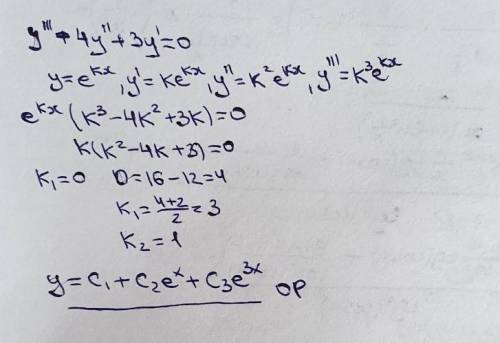 y''' - 4y'' + 3y' = 0
y = e^{kx}, y' = ke^{kx}, y'' = k^2 e^{kx}, y''' = k^3 e^{kx}
e^{kx} (k^3 - 4k^2 + 3k) = 0
k(k^2 - 4k + 3) = 0
k_1 = 0 D = 16 - 12 = 4
k_1 = \frac{4+2}{2} = 3
k_2 = 1
y = C_1 + C_2 e^x + C_3 e^{3x} ОР